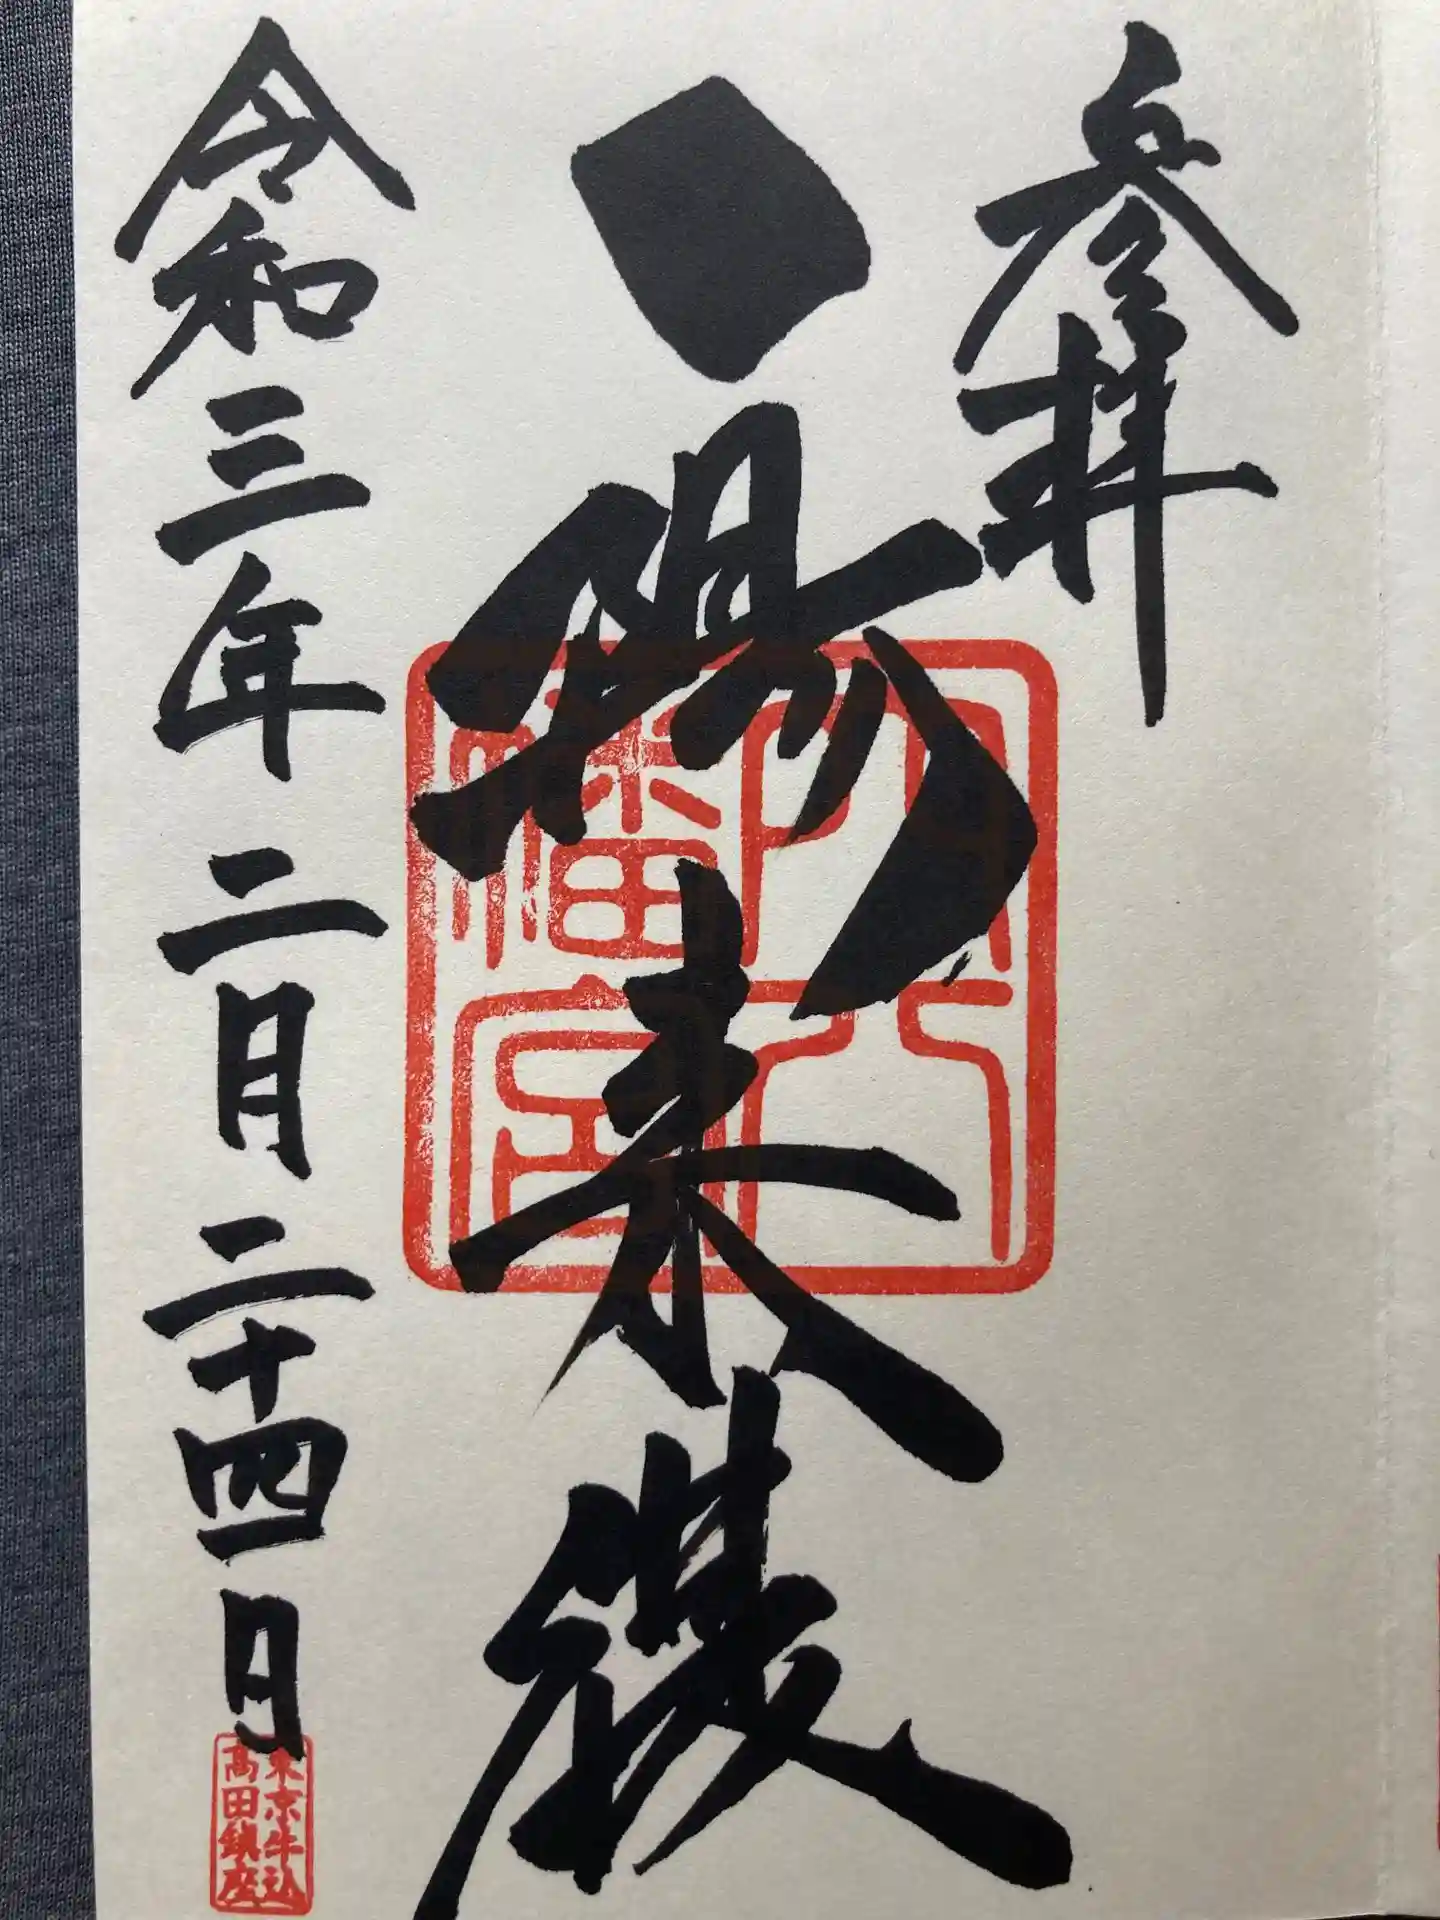 参拝
一陽来復
穴八
幡宮
令和三年二月二十四日
東京牛込
高田鎮座